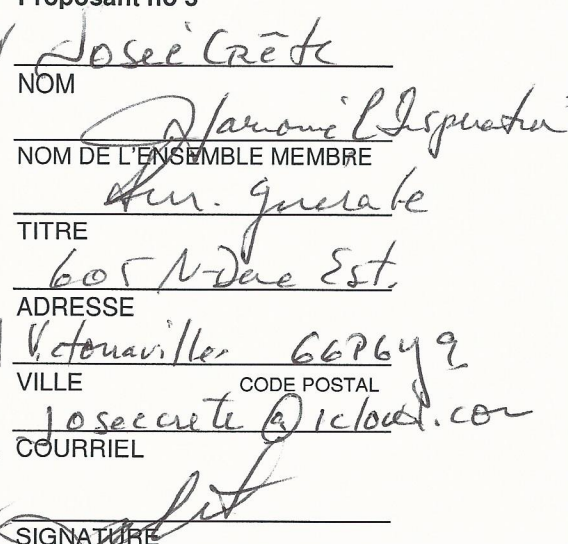 Proposant no 3
Josée Crête
NOM
Harmonie l'Inspiration
NOM DE L'ENSEMBLE MEMBRE
générale
TITRE
605 N-Dame Est.
ADRESSE
Victoriaville G6P6Y9
VILLE CODE POSTAL
joseecrete@icloud.com
COURRIEL
SIGNATURE